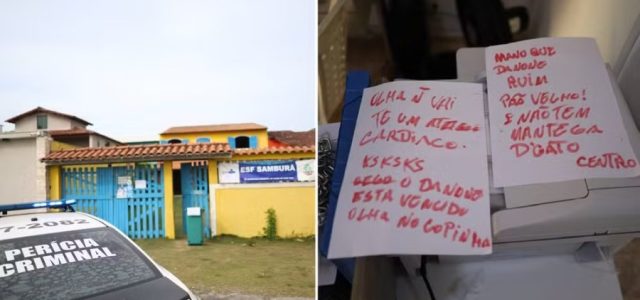 ESF SAMBURÁ
7-2082
PERÍCIA
CRIMINAL
OLHA Ñ VAI
TE UM ATAQUE
CARDIACO.
KSKSKS
LEGO O DANONE
ESTA VENCIDO
OLHA NO COPINHA
MANO QUE
DANONE
RUIM
PÃO VELHO!
E NÃO TEM
MANTEGA
D'GATO
CENTRO